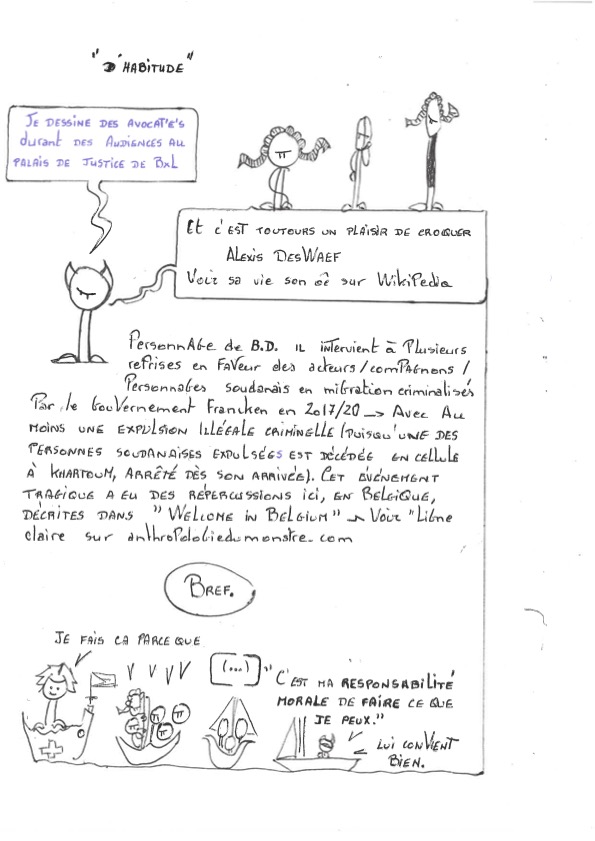 "D'HABITUDE"
JE DESSINE DES AVOCAT'E'S
durant DES AUDIENCES AU
PALAIS DE JUSTICE DE BXL
Et C'EST TOUJOURS UN PLAISIR DE CROQUER
ALEXIS DESWAEF
Voir sa vie son œ sur WIKIPedia
PERSONNAGE de B.D. IL INTERVIENT à PLUSIEURS
REPRISES en FAVEUR des acteurs/comPAGNONS/
PERSONNAGES soudanais en migration criminalisés
PAR le GOUVERNEMENT FRANCKEN en 2017/20 → AVEC AU
MOINS UNE EXPULSION ILLÉGALE CRIMINELLE (PUISQU'UNE DES
PERSONNES SOUDANAISES EXPULSÉES EST DÉCÉDÉE EN CELLULE
À KHARTOUM, ARRÊTÉ DÈS SON ARRIVÉE). CET ÉVÉNEMENT
TRAGIQUE A EU DES RÉPERCUSSIONS ICI, EN BELGIQUE,
DÉCRITES DANS " WELCOME IN BELGIUM" → VOIR "LIGNE
claire sur anthropologiedumonstre.com
BREF.
JE FAIS ÇA PARCE QUE
(...)
"C'EST MA RESPONSABILITÉ
MORALE DE FAIRE CE QUE
JE PEUX."
LUI CONVIENT
BIEN.